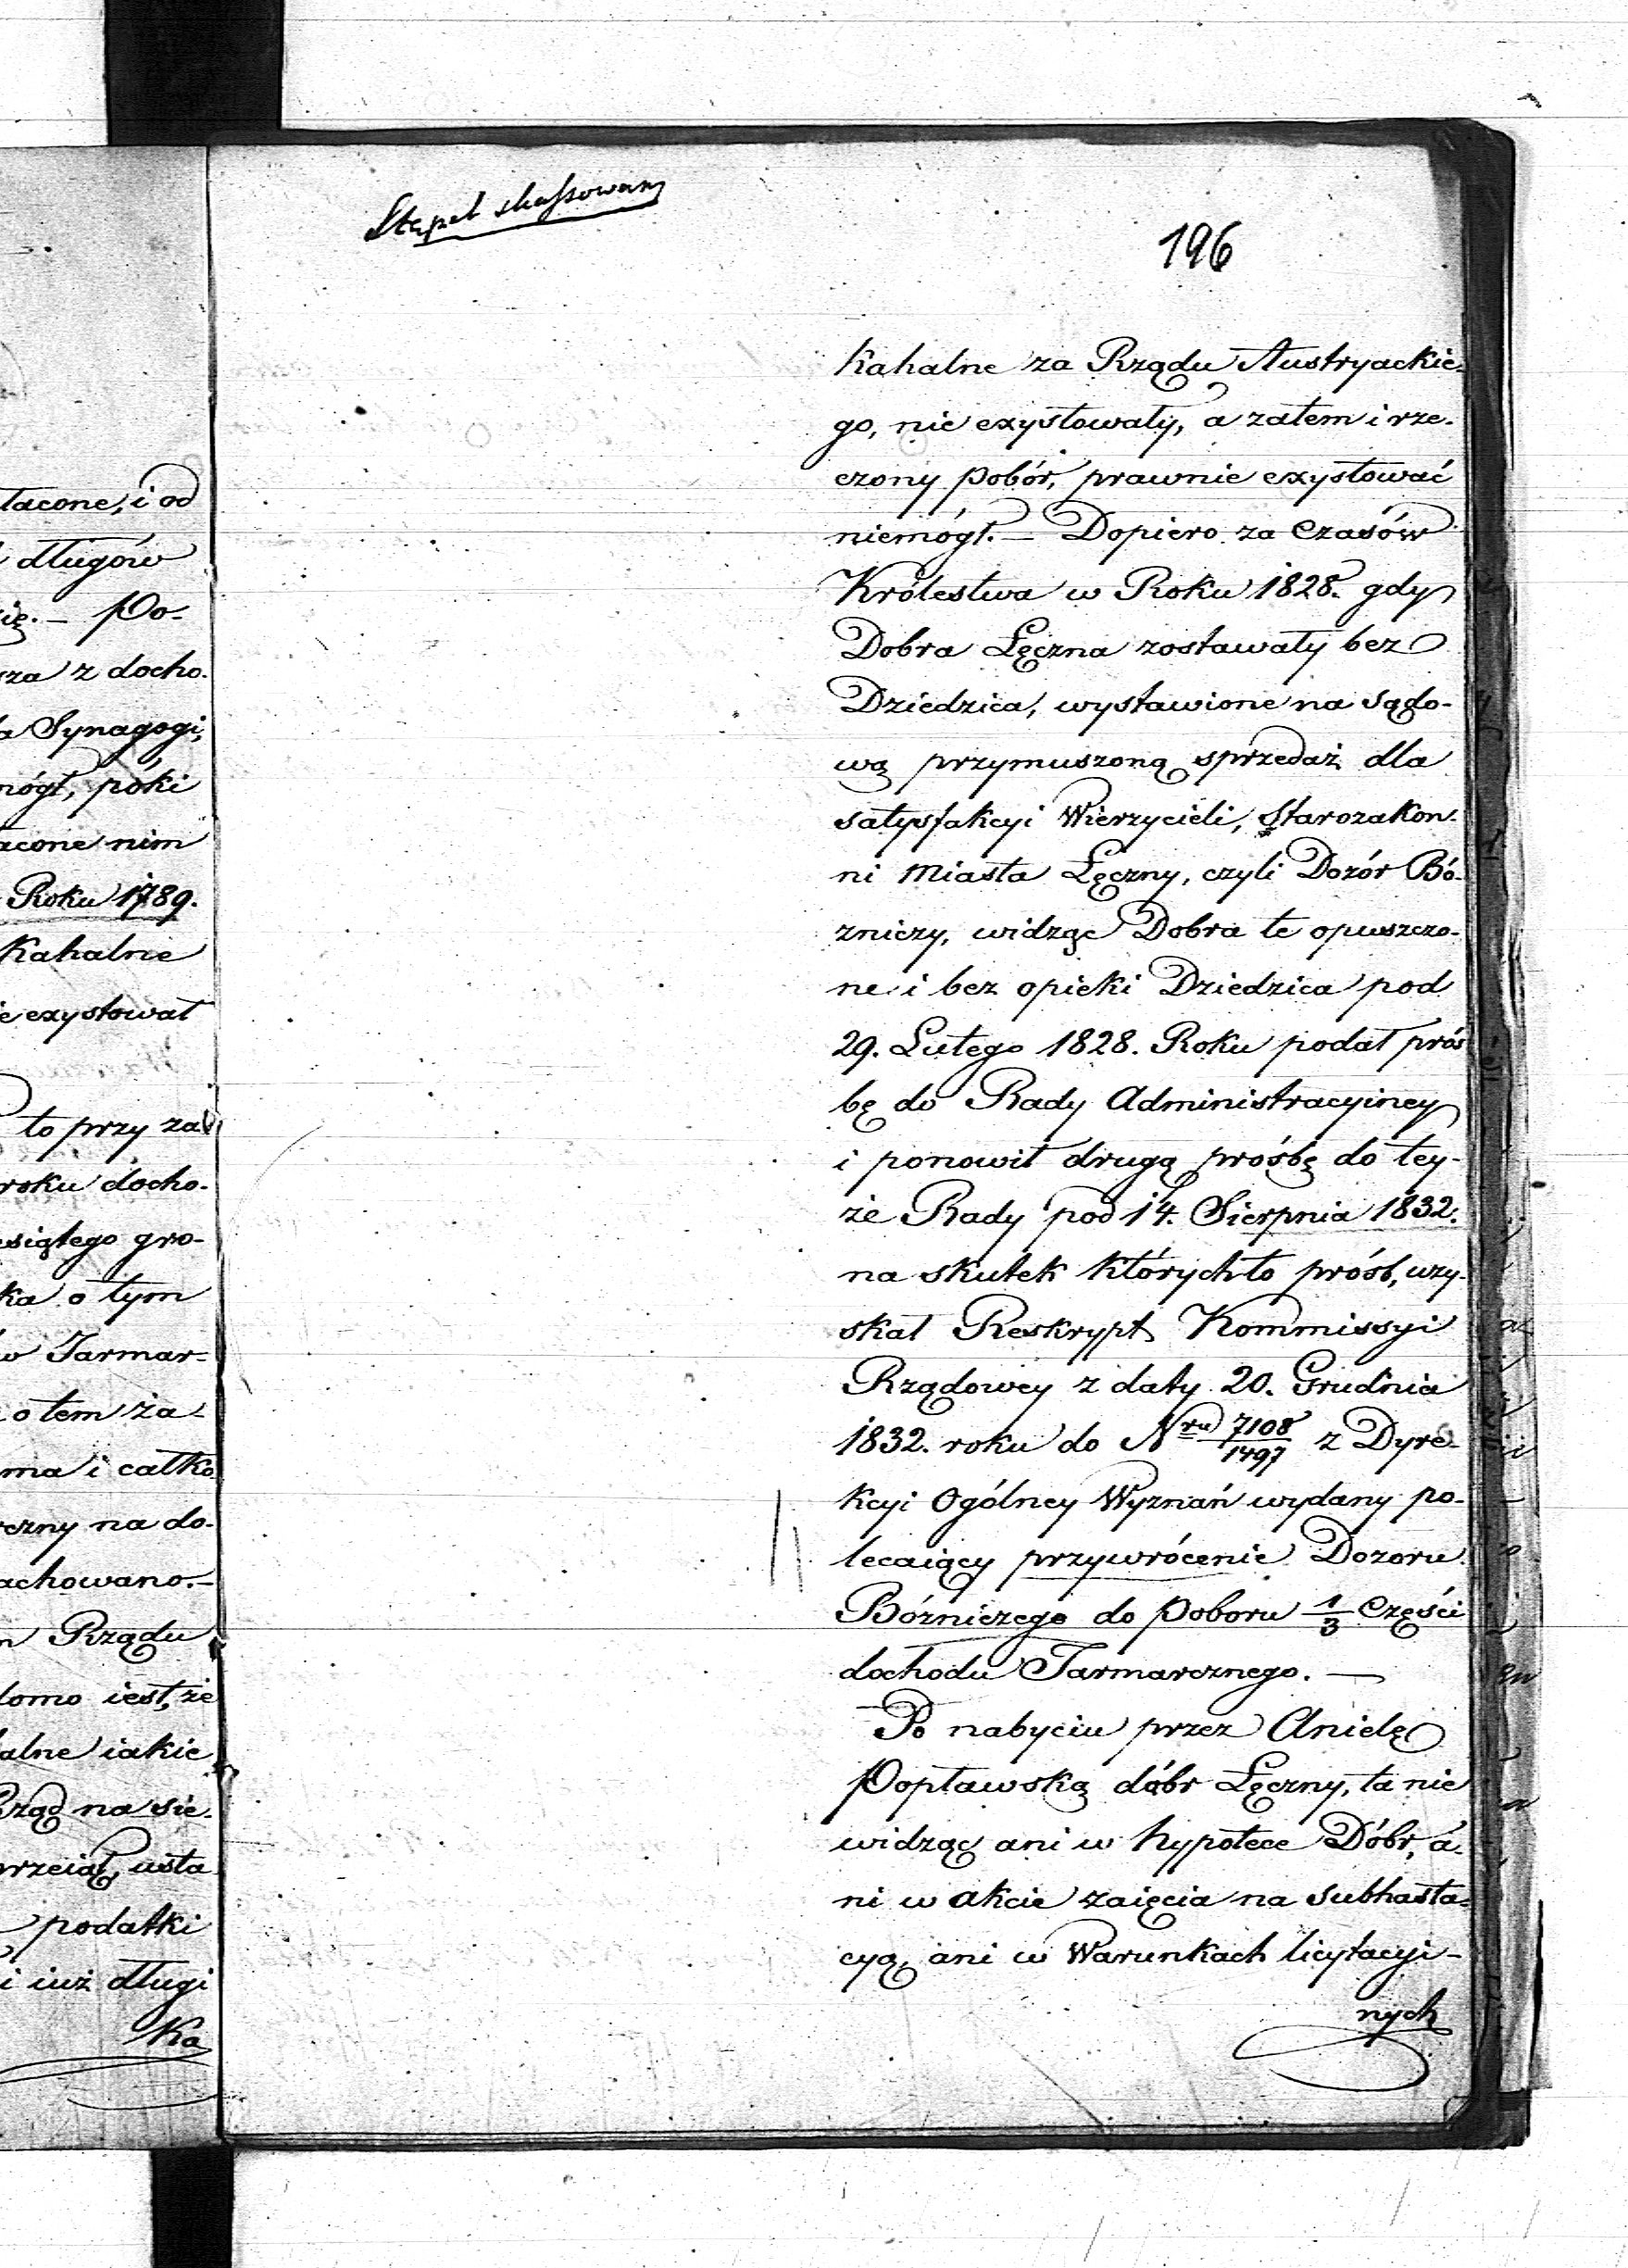 Stępel skassowany
196
kahalne za Rządu Austryackie-
go, nie exystowały, a zatem i rze-
czony pobór, prawnie exystować
niemógł. — Dopiero za Czasów
Królestwa w Roku 1828. gdy
Dobra Łęczna zostawały bez
Dziedzica, wystawione na sądo-
wą przymuszoną sprzedaż dla
satysfakcyi Wierzycieli, Starozakon-
ni Miasta Łęczny, czyli Dozór Bó-
zniczy, widząc Dobra te opuszczo-
ne i bez opieki Dziedzica pod
29. Lutego 1828. Roku podał proś
bę do Rady Administracyiney
i ponowił drugą prośbę do tey-
że Rady pod 14. Sierpnia 1832.
na skutek którychto próśb, uzy-
skał Reskrypt Kommissyi
Rządowey z daty 20. Grudnia
1832. roku do Nru 7108/1497 z Dyre-
kcyi Ogólney Wyznań wydany po-
lecaiący przywrócenie Dozoru
Bózniczego do poboru 1/3 Części
dochodu Jarmarcznego. —
Po nabyciu przez Anielę
Popławską dóbr Łęczny, ta nie
widząc ani w hypotece Dóbr, a-
ni w akcie zaięcia na Subhasta-
cyą, ani w Warunkach licytacyi-
nych
łacone, i od
długów
ię. — Po-
sza z docho-
a Synagogi,
mógł, póki
acone nim
Roku 1789.
Kahalne
ie exystował
to przy za
roku docho-
esiątego gro-
ka o tym
w Jarmar-
o tem za-
ma i całko
czny na do-
achowano. —
m Rządu
domo iest, że
alne iakie
Rząd na sie-
przeiął, usta
podatki
i iuż długi
Ka